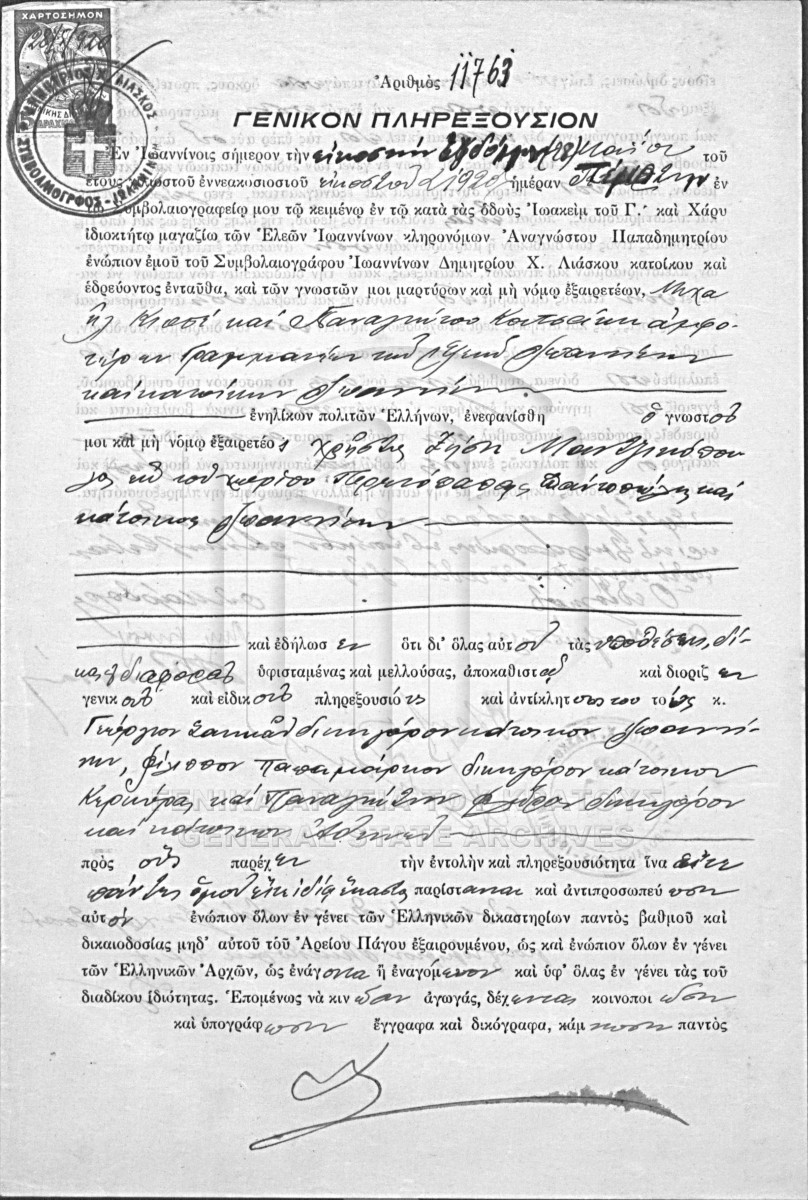 ΧΑΡΤΟΣΗΜΟΝ
Ἀριθμὸς 11763
ΓΕΝΙΚΟΝ ΠΛΗΡΕΞΟΥΣΙΟΝ
Ἐν Ἰωαννίνοις σήμερον τὴν εἰκοστὴν ἑβδόμην Μαΐου τοῦ
ἔτους χιλιοστοῦ ἐννεακοσιοστοῦ εἰκοστοῦ ἡμέραν Πέμπτην ἐν
τῷ Συμβολαιογραφείῳ μου τῷ κειμένῳ ἐν τῷ κατὰ τὰς ὁδοὺς Ἰωακεὶμ τοῦ Γ.´ καὶ Χάρυ
ἰδιοκτήτῳ μαγαζίῳ τῶν Ἐλεῶν Ἰωαννίνων κληρονόμων Ἀναγνώστου Παπαδημητρίου
ἐνώπιον ἐμοῦ τοῦ Συμβολαιογράφου Ἰωαννίνων Δημητρίου Χ. Λιάσκου κατοίκου καὶ
ἑδρεύοντος ἐνταῦθα, καὶ τῶν γνωστῶν μοι μαρτύρων καὶ μὴ νόμῳ ἐξαιρετέων, Μιχα
ὴλ καὶ Παναγιώτου ἀμφο
τέρων
καὶ κατοίκων Ἰωαννίνων
ἐνηλίκων πολιτῶν Ἑλλήνων, ἐνεφανίσθη ὁ γνωστός
μοι καὶ μὴ νόμῳ ἐξαιρετέος Χρῆστος Ζήση
λος ἐκ τοῦ χωρίου καὶ
κάτοικος Ἰωαννίνων
καὶ ἐδήλωσεν ὅτι δι' ὅλας αὐτοῦ τὰς ὑποθέσεις, δί
κας ἢ διαφορὰς ὑφισταμένας καὶ μελλούσας, ἀποκαθιστᾷ καὶ διορίζει
γενικοὺς καὶ εἰδικοὺς πληρεξουσίους καὶ ἀντικλήτους του τοὺς κ.
Γεώργιον δικηγόρον κάτοικον Ἰωαννί
νων, Φίλιππον Παπαμάρκου δικηγόρον κάτοικον
Κερκύρας καὶ Παναγιώτην δικηγόρον
καὶ κάτοικον Ἀθηνῶν
ΓΕΝΙΚΑ ΑΡΧΕΙΑ ΤΟΥ ΚΡΑΤΟΥΣ
GENERAL STATE ARCHIVES
πρὸς οὓς παρέχει τὴν ἐντολὴν καὶ πληρεξουσιότητα ἵνα εἴτε
πάντες ὁμοῦ εἴτε ἰδίᾳ ἕκαστος παρίστανται καὶ ἀντιπροσωπεύουσιν
αὐτὸν ἐνώπιον ὅλων ἐν γένει τῶν Ἑλληνικῶν δικαστηρίων παντὸς βαθμοῦ καὶ
δικαιοδοσίας μηδ' αὐτοῦ τοῦ Ἀρείου Πάγου ἐξαιρουμένου, ὡς καὶ ἐνώπιον ὅλων ἐν γένει
τῶν Ἑλληνικῶν Ἀρχῶν, ὡς ἐνάγοντα ἢ ἐναγόμενον καὶ ὑφ' ὅλας ἐν γένει τὰς τοῦ
διαδίκου ἰδιότητας. Ἑπομένως νὰ κινῶσιν ἀγωγάς, δέχωνται, κοινοποιῶσιν
καὶ ὑπογράφωσιν ἔγγραφα καὶ δικόγραφα, κάμνωσιν παντὸς